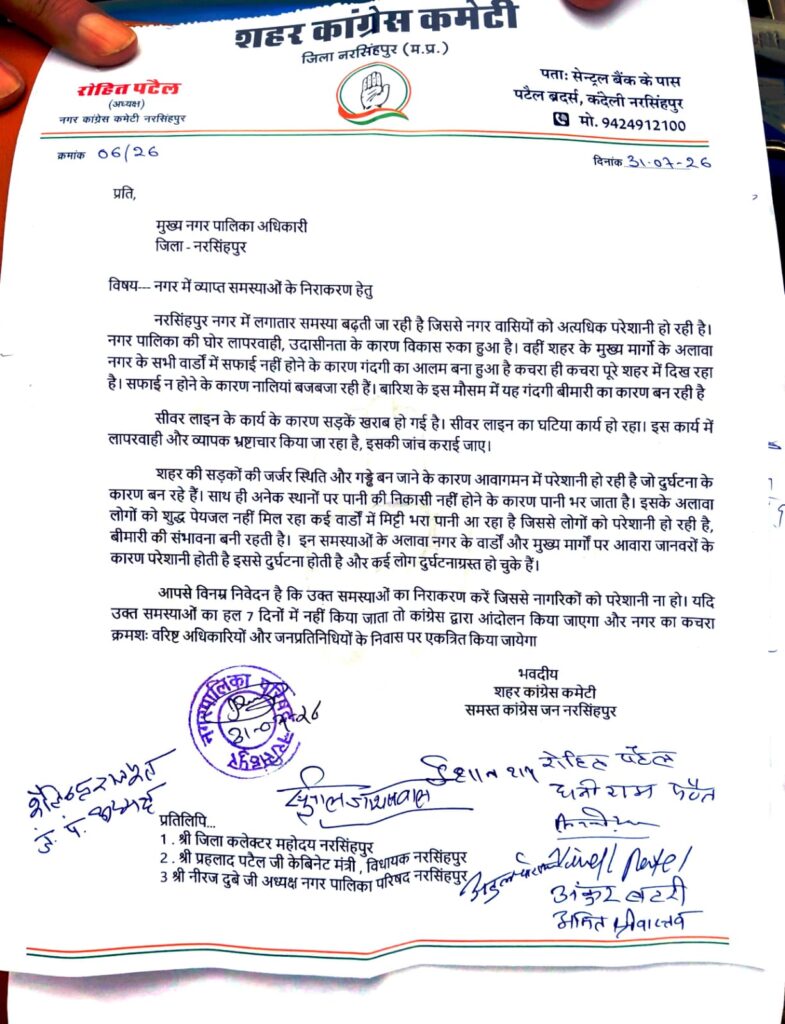 शहर कांग्रेस कमेटी
जिला नरसिंहपुर (म.प्र.)
रोहित पटैल
(अध्यक्ष)
नगर कांग्रेस कमेटी नरसिंहपुर
पताः सेन्ट्रल बैंक के पास
पटैल ब्रदर्स, कंदेली नरसिंहपुर
मो. 9424912100
क्रमांक 06/26
दिनांक 31-07-26
प्रति,
मुख्य नगर पालिका अधिकारी
जिला - नरसिंहपुर
विषय--- नगर में व्याप्त समस्याओं के निराकरण हेतु
नरसिंहपुर नगर में लगातार समस्या बढ़ती जा रही है जिससे नगर वासियों को अत्यधिक परेशानी हो रही है।
नगर पालिका की घोर लापरवाही, उदासीनता के कारण विकास रुका हुआ है। वहीं शहर के मुख्य मार्गो के अलावा
नगर के सभी वार्डों में सफाई नहीं होने के कारण गंदगी का आलम बना हुआ है कचरा ही कचरा पूरे शहर में दिख रहा
है। सफाई न होने के कारण नालियां बजबजा रही हैं। बारिश के इस मौसम में यह गंदगी बीमारी का कारण बन रही है
सीवर लाइन के कार्य के कारण सड़कें खराब हो गई है। सीवर लाइन का घटिया कार्य हो रहा। इस कार्य में
लापरवाही और व्यापक भ्रष्टाचार किया जा रहा है, इसकी जांच कराई जाए।
शहर की सड़कों की जर्जर स्थिति और गड्ढे बन जाने के कारण आवागमन में परेशानी हो रही है जो दुर्घटना के
कारण बन रहे हैं। साथ ही अनेक स्थानों पर पानी की निकासी नहीं होने के कारण पानी भर जाता है। इसके अलावा
लोगों को शुद्ध पेयजल नहीं मिल रहा कई वार्डों में मिट्टी भरा पानी आ रहा है जिससे लोगों को परेशानी हो रही है,
बीमारी की संभावना बनी रहती है। इन समस्याओं के अलावा नगर के वार्डों और मुख्य मार्गों पर आवारा जानवरों के
कारण परेशानी होती है इससे दुर्घटना होती है और कई लोग दुर्घटनाग्रस्त हो चुके हैं।
आपसे विनम्र निवेदन है कि उक्त समस्याओं का निराकरण करें जिससे नागरिकों को परेशानी ना हो। यदि
उक्त समस्याओं का हल 7 दिनों में नहीं किया जाता तो कांग्रेस द्वारा आंदोलन किया जाएगा और नगर का कचरा
क्रमशः वरिष्ट अधिकारियों और जनप्रतिनिधियों के निवास पर एकत्रित किया जायेगा
भवदीय
शहर कांग्रेस कमेटी
समस्त कांग्रेस जन नरसिंहपुर
नगरपालिका परिषद नरसिंहपुर
31-07-26
रोहित पटैल
धनीराम पटैल
प्रतिलिपि...
1 . श्री जिला कलेक्टर महोदय नरसिंहपुर
2 . श्री प्रहलाद पटैल जी केबिनेट मंत्री , विधायक नरसिंहपुर
3 श्री नीरज दुबे जी अध्यक्ष नगर पालिका परिषद नरसिंहपुर
Vineet Patel
अमित श्रीवास्तव